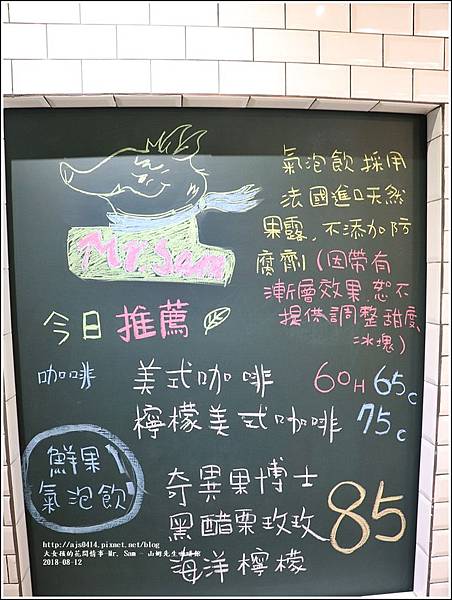 Mr. Sam
氣泡飲採用
法國進口天然
果露、不添加防
腐劑(因帶有
漸層效果,恕不
提供調整甜度、
冰塊)
今日推薦
咖啡 美式咖啡 60H 65C
檸檬美式咖啡 75C
鮮果
氣泡飲
奇異果博士
黑醋栗玫玫 85
海洋檸檬
http://ajs0414.pixnet.net/blog
大女孩的花間情事-Mr. Sam - 山姆先生咖啡館
2018-08-12